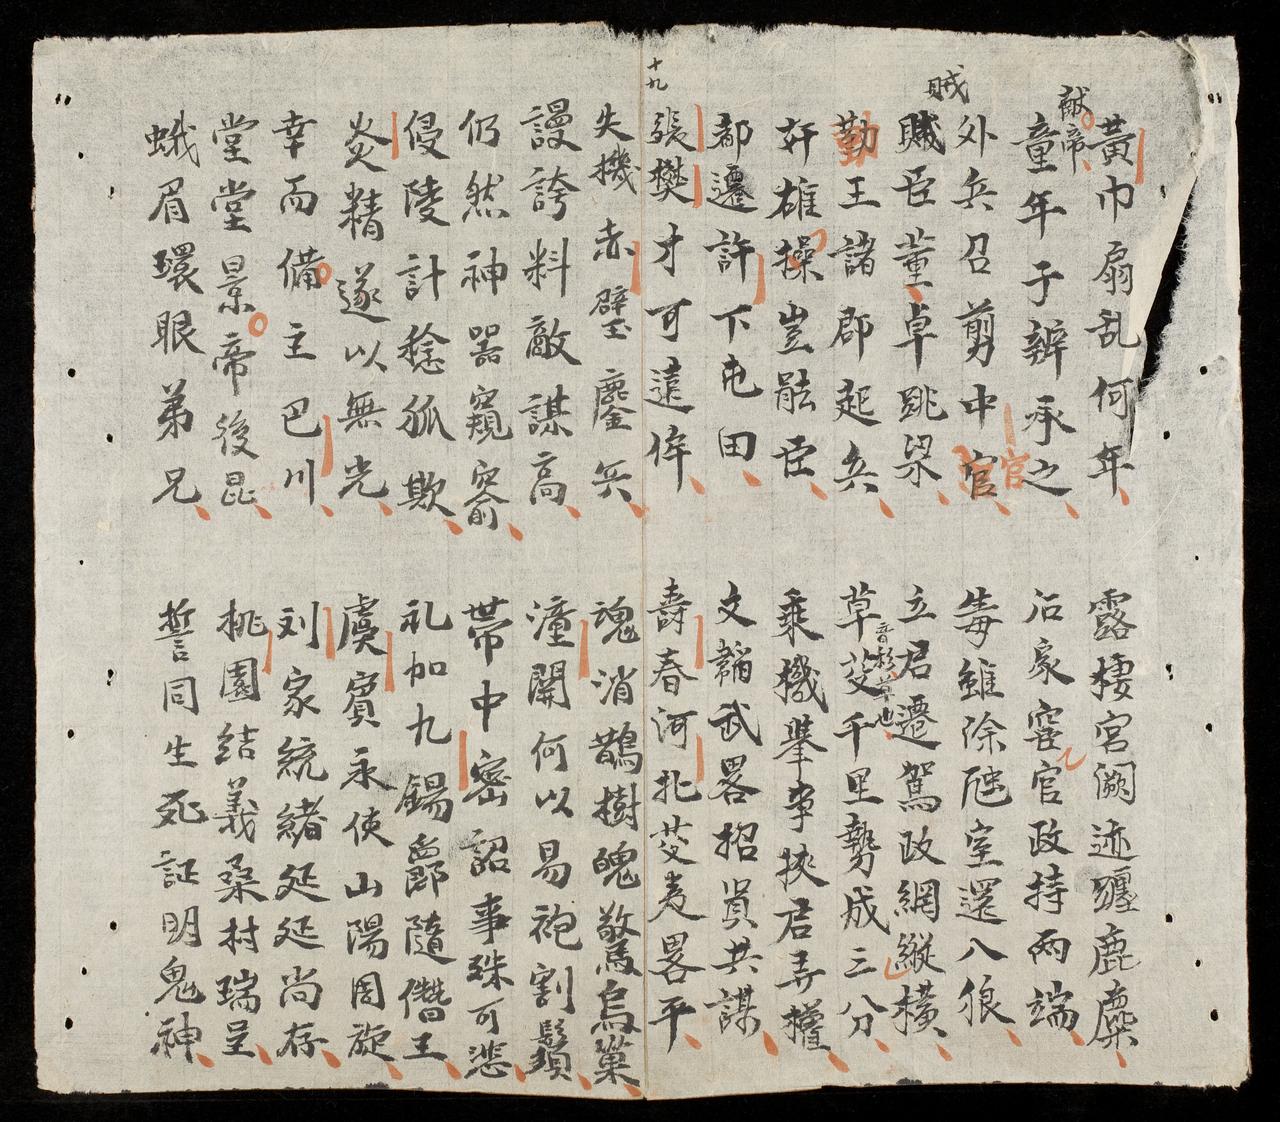 黃巾扇乱何年
露棲宮闕迹躔鹿麋
献帝
童年子辨承之
后家宦官政持兩端
外兵召剪中官
官
毒雖除虺室還八狼
賊
賊臣董卓跳梁
立君遷駕政綱縱橫
勤王諸郡起兵
草芟千里勢成三分
音衫草也
奸雄操豈能臣
乘機舉事挾君弄權
都遷許下屯田
文韜武畧招賢共謀
十九
張樊才可遠侔
壽春河北芟夷畧平
失機赤壁鏖兵
魂消鵲樹魄驚烏巢
謾誇料敵謀高
潼關何以易袍割鬚
仍然神器窺窬
帶中密詔事殊可悲
侵陵計稔孤欺
礼加九錫爵隨僭王
炎精遂以無光
虞賓永使山陽周旋
幸而備主巴川
刘家統緒延延尚存
堂堂景帝後昆
桃園結義桑村瑞呈
蛾眉環眼弟兄
誓同生死証明鬼神